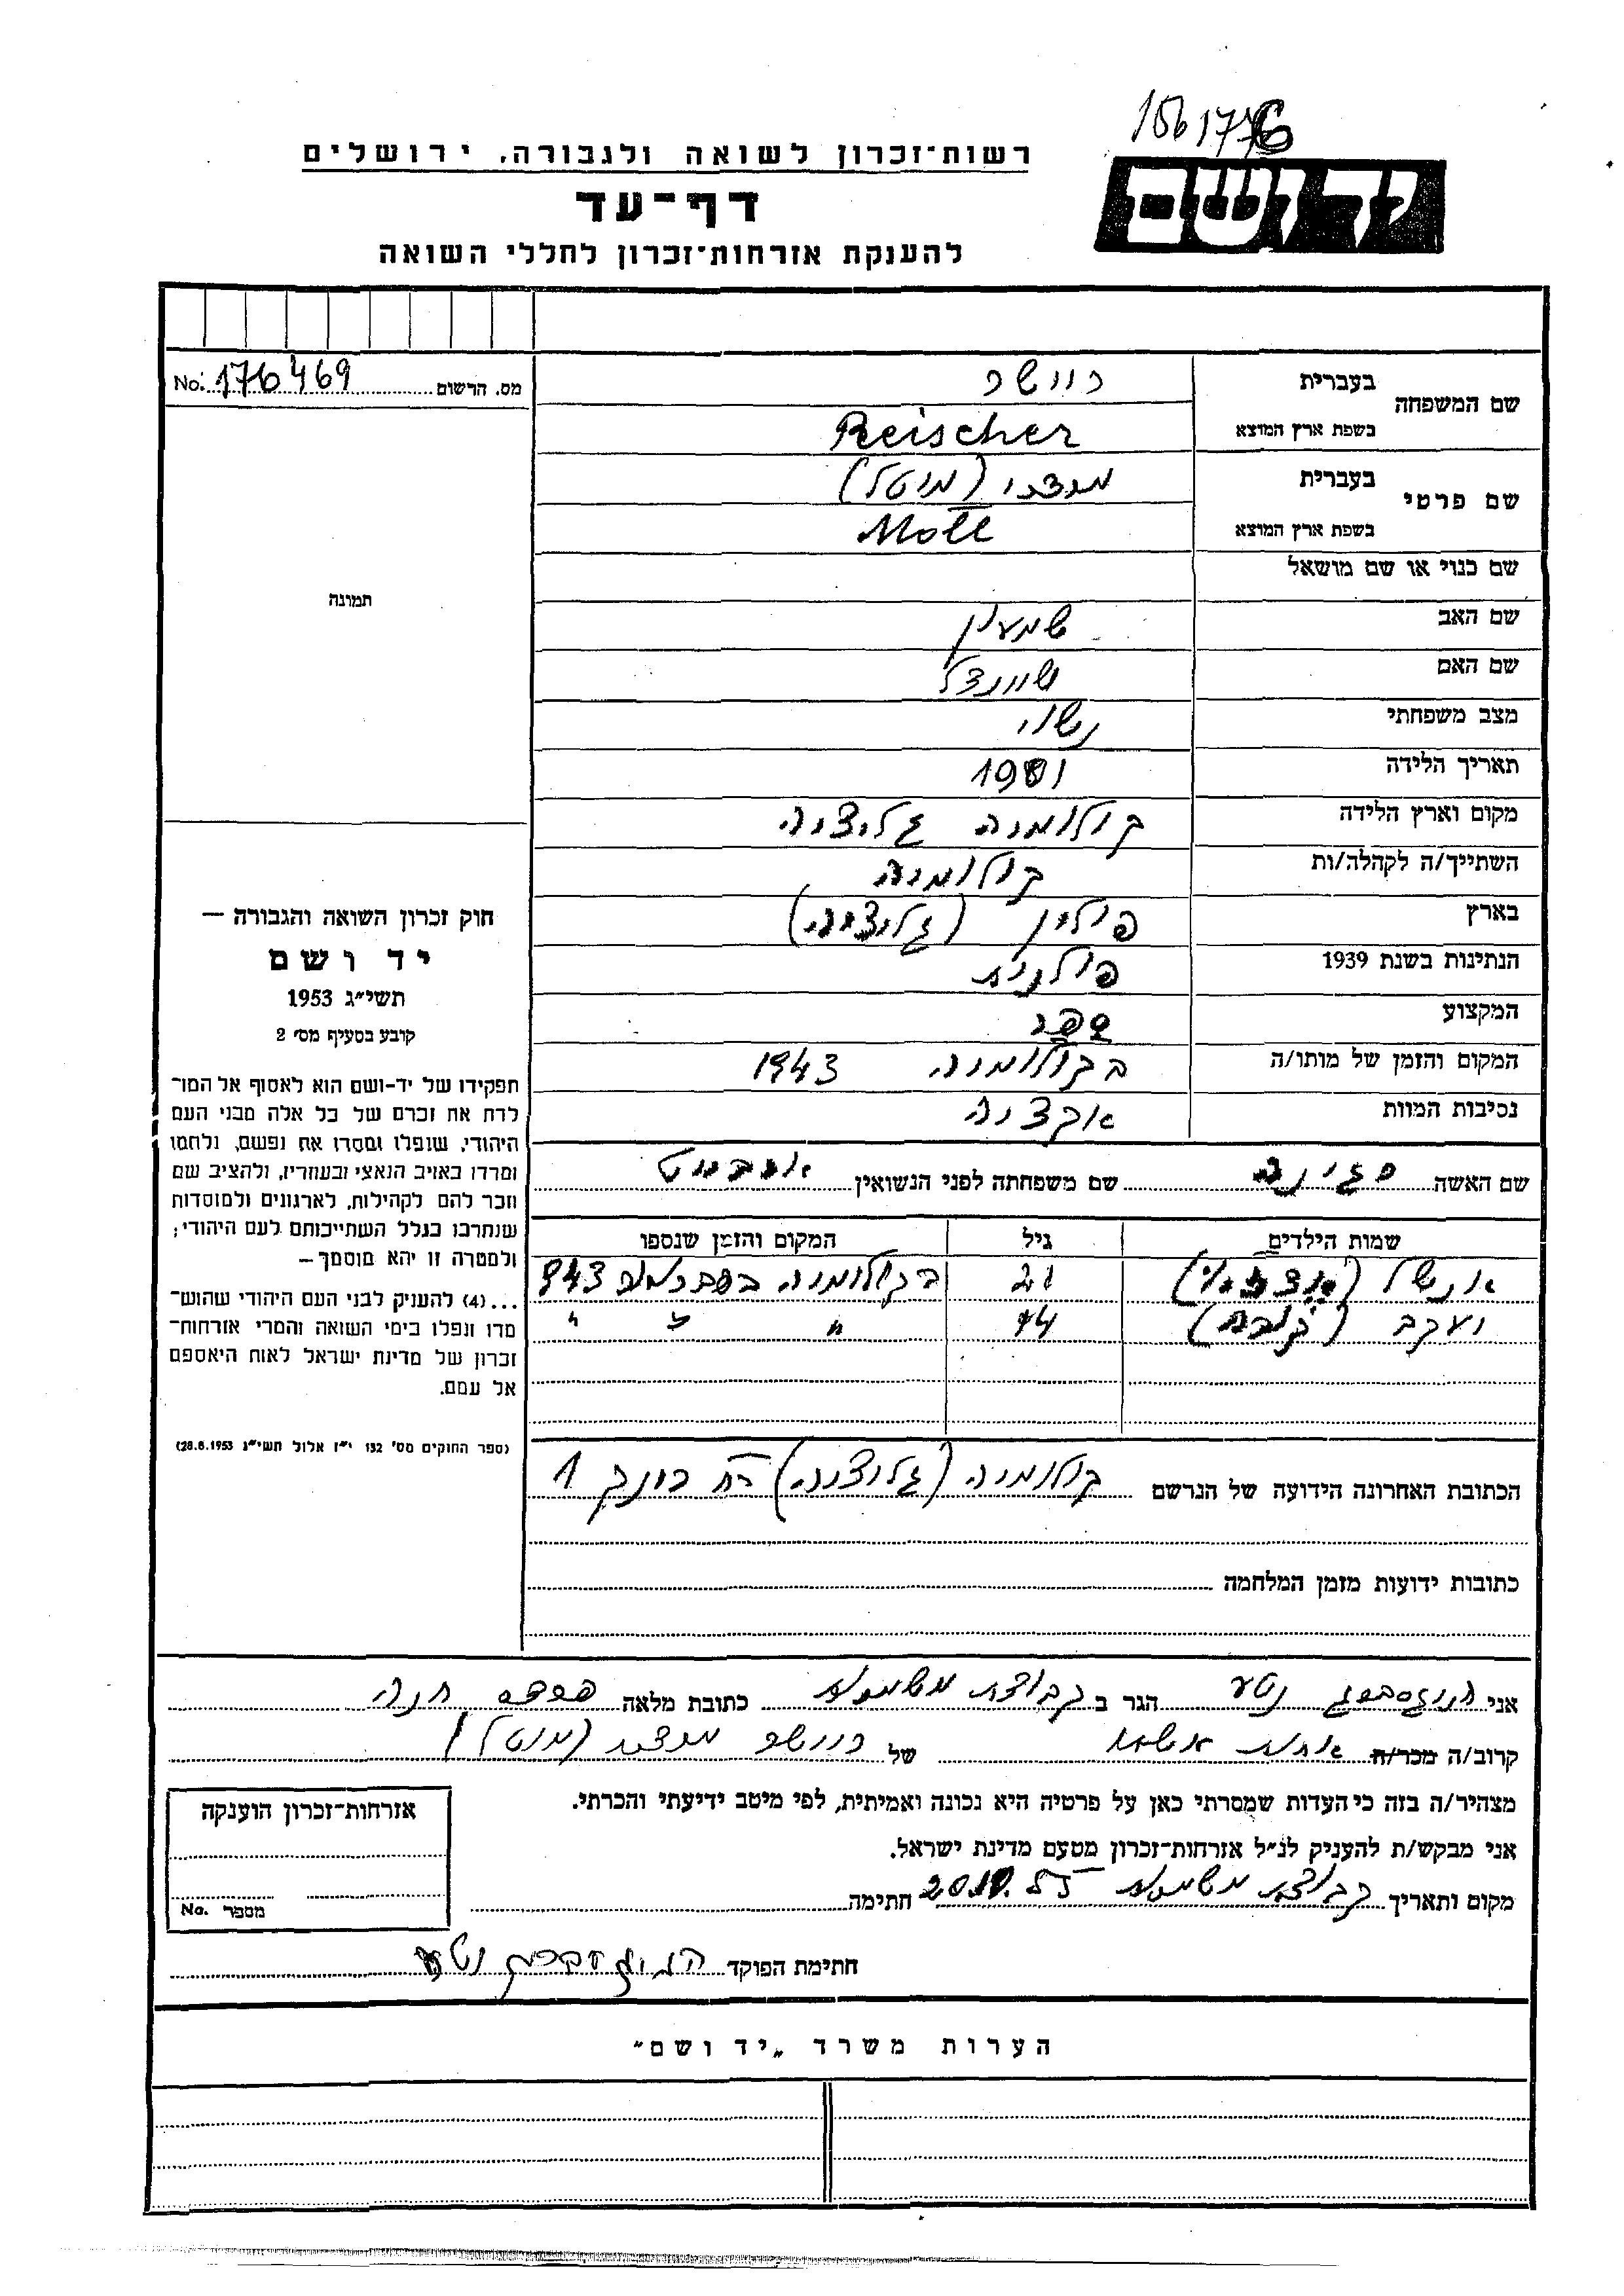 156176
יד ושם
רשות־זכרון לשואה ולגבורה, ירושלים
דף־עד
להענקת אזרחות־זכרון לחללי השואה
מס. הרשום No. 176469
שם המשפחה בעברית ריישר
בשפת ארץ המוצא Reischer
שם פרטי בעברית מרדכי (מוטל)
בשפת ארץ המוצא Motl
שם כנוי או שם מושאל
שם האב שמעון
שם האם שיינדל
מצב משפחתי נשוי
תאריך הלידה
מקום וארץ הלידה קולומיה גליציה
השתייך/ה לקהלה/ות קולומיה
בארץ פולין (גליציה)
הנתינות בשנת 1939 פולנית
המקצוע ספר
המקום והזמן של מותו/ה בקולומיה 1943
נסיבות המוות אקציה
שם האשה שם משפחתה לפני הנשואין
שמות הילדים גיל המקום והזמן שנספו
אנשל 21 בקולומיה 943
יעקב 14 " " "
הכתובת האחרונה הידועה של הנרשם קולומיה (גליציה) רח 1
כתובות ידועות מזמן המלחמה
תמונה
חוק זכרון השואה והגבורה —
יד ושם
תשי״ג 1953
קובע בסעיף מס׳ 2
תפקידו של יד־ושם הוא לאסוף אל המו־
לדת את זכרם של כל אלה מבני העם
היהודי, שנפלו ומסרו את נפשם, נלחמו
ומרדו באויב הנאצי ובעוזריו, ולהציב שם
וזכר להם לקהילות, לארגונים ולמוסדות
שנחרבו בגלל השתייכותם לעם היהודי;
ולמטרה זו יהא מוסמך—
...(4) להענק לבני העם היהודי שהוש־
מדו ונפלו בימי השואה והמרי אזרחות־
זכרון של מדינת ישראל לאות היאספם
אל עמם.
(ספר החוקים מס׳ 132 י״ז אלול תשי״ג 28.8.1953)
אני נטע הגר ב קבוצת משמרות כתובת מלאה פרדס חנה
קרוב/ה מכר/ה של ריישר מרדכי (מוטל)
מצהיר/ה בזה כי העדות שמסרתי כאן על פרטיה היא נכונה ואמיתית, לפי מיטב ידיעתי והכרתי.
אני מבקש/ת להעניק לנ״ל אזרחות־זכרון מטעם מדינת ישראל.
מקום ותאריך קבוצת משמרות חתימה
חתימת הפוקד נטע
אזרחות־זכרון הוענקה
מספר No.
הערות משרד „יד ושם״